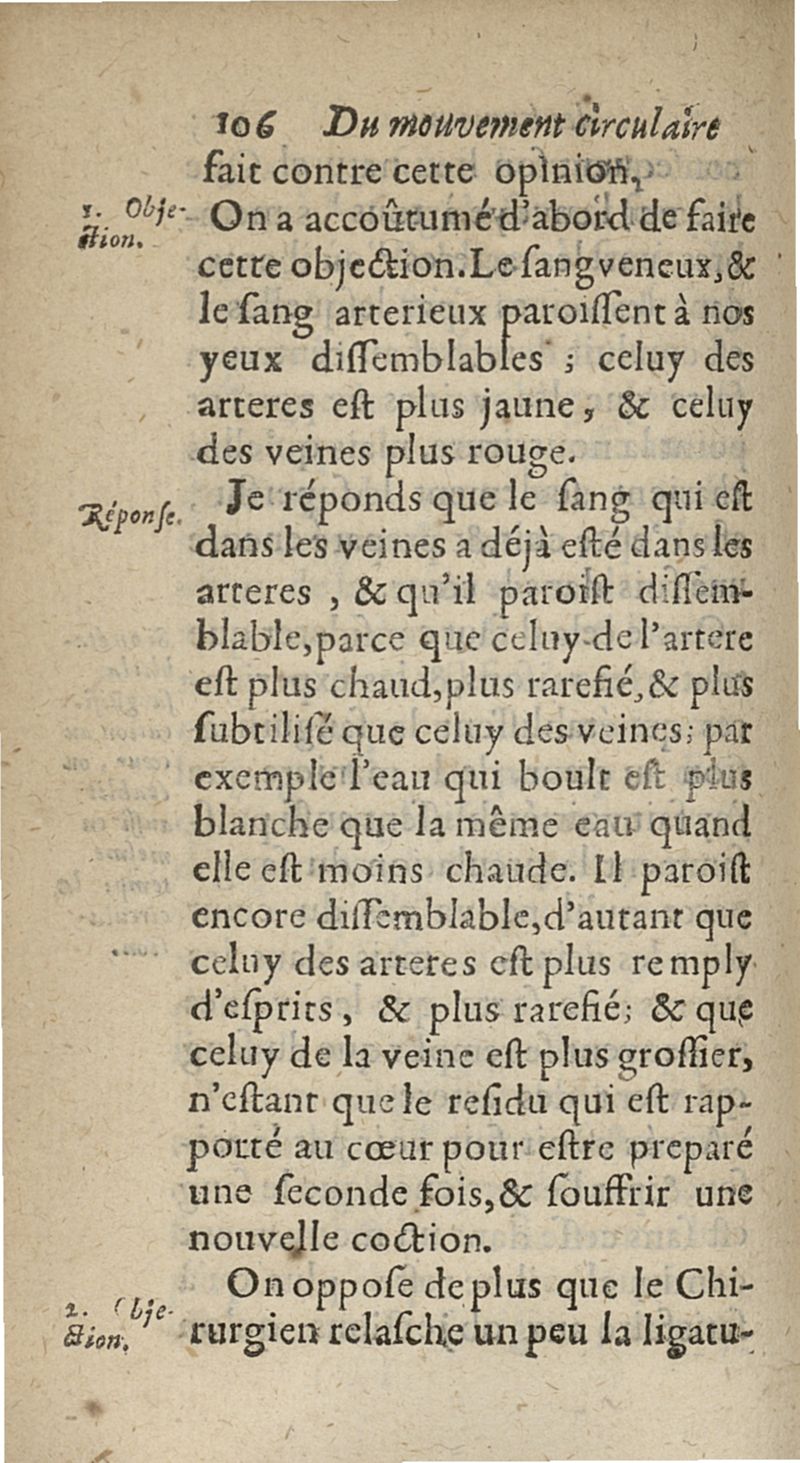 106 Du mouvement circulaire
fait contre cette opinion.
1. Obje-
ction.
On a accoûtumé d'abord de faire
cette objection. Le ſang veneux, &
le ſang arterieux paroiſſent à nos
yeux diſſemblables ; celuy des
arteres eſt plus jaune, & celuy
des veines plus rouge.
Réponſe.
Je réponds que le ſang qui eſt
dans les veines a déjà eſté dans les
arteres , & qu'il paroiſt diſſem-
blable, parce que celuy de l'artere
eſt plus chaud, plus rarefié, & plus
ſubtiliſé que celuy des veines; par
exemple l'eau qui boult eſt plus
blanche que la même eau quand
elle eſt moins chaude. Il paroiſt
encore diſſemblable, d'autant que
celuy des arteres eſt plus remply
d'eſprits, & plus rarefié; & que
celuy de la veine eſt plus groſſier,
n'eſtant que le reſidu qui eſt rap-
porté au cœur pour eſtre preparé
une ſeconde fois, & ſouffrir une
nouvelle coction.
2. Obje-
ction.
On oppoſe de plus que le Chi-
rurgien relaſche un peu la ligatu-